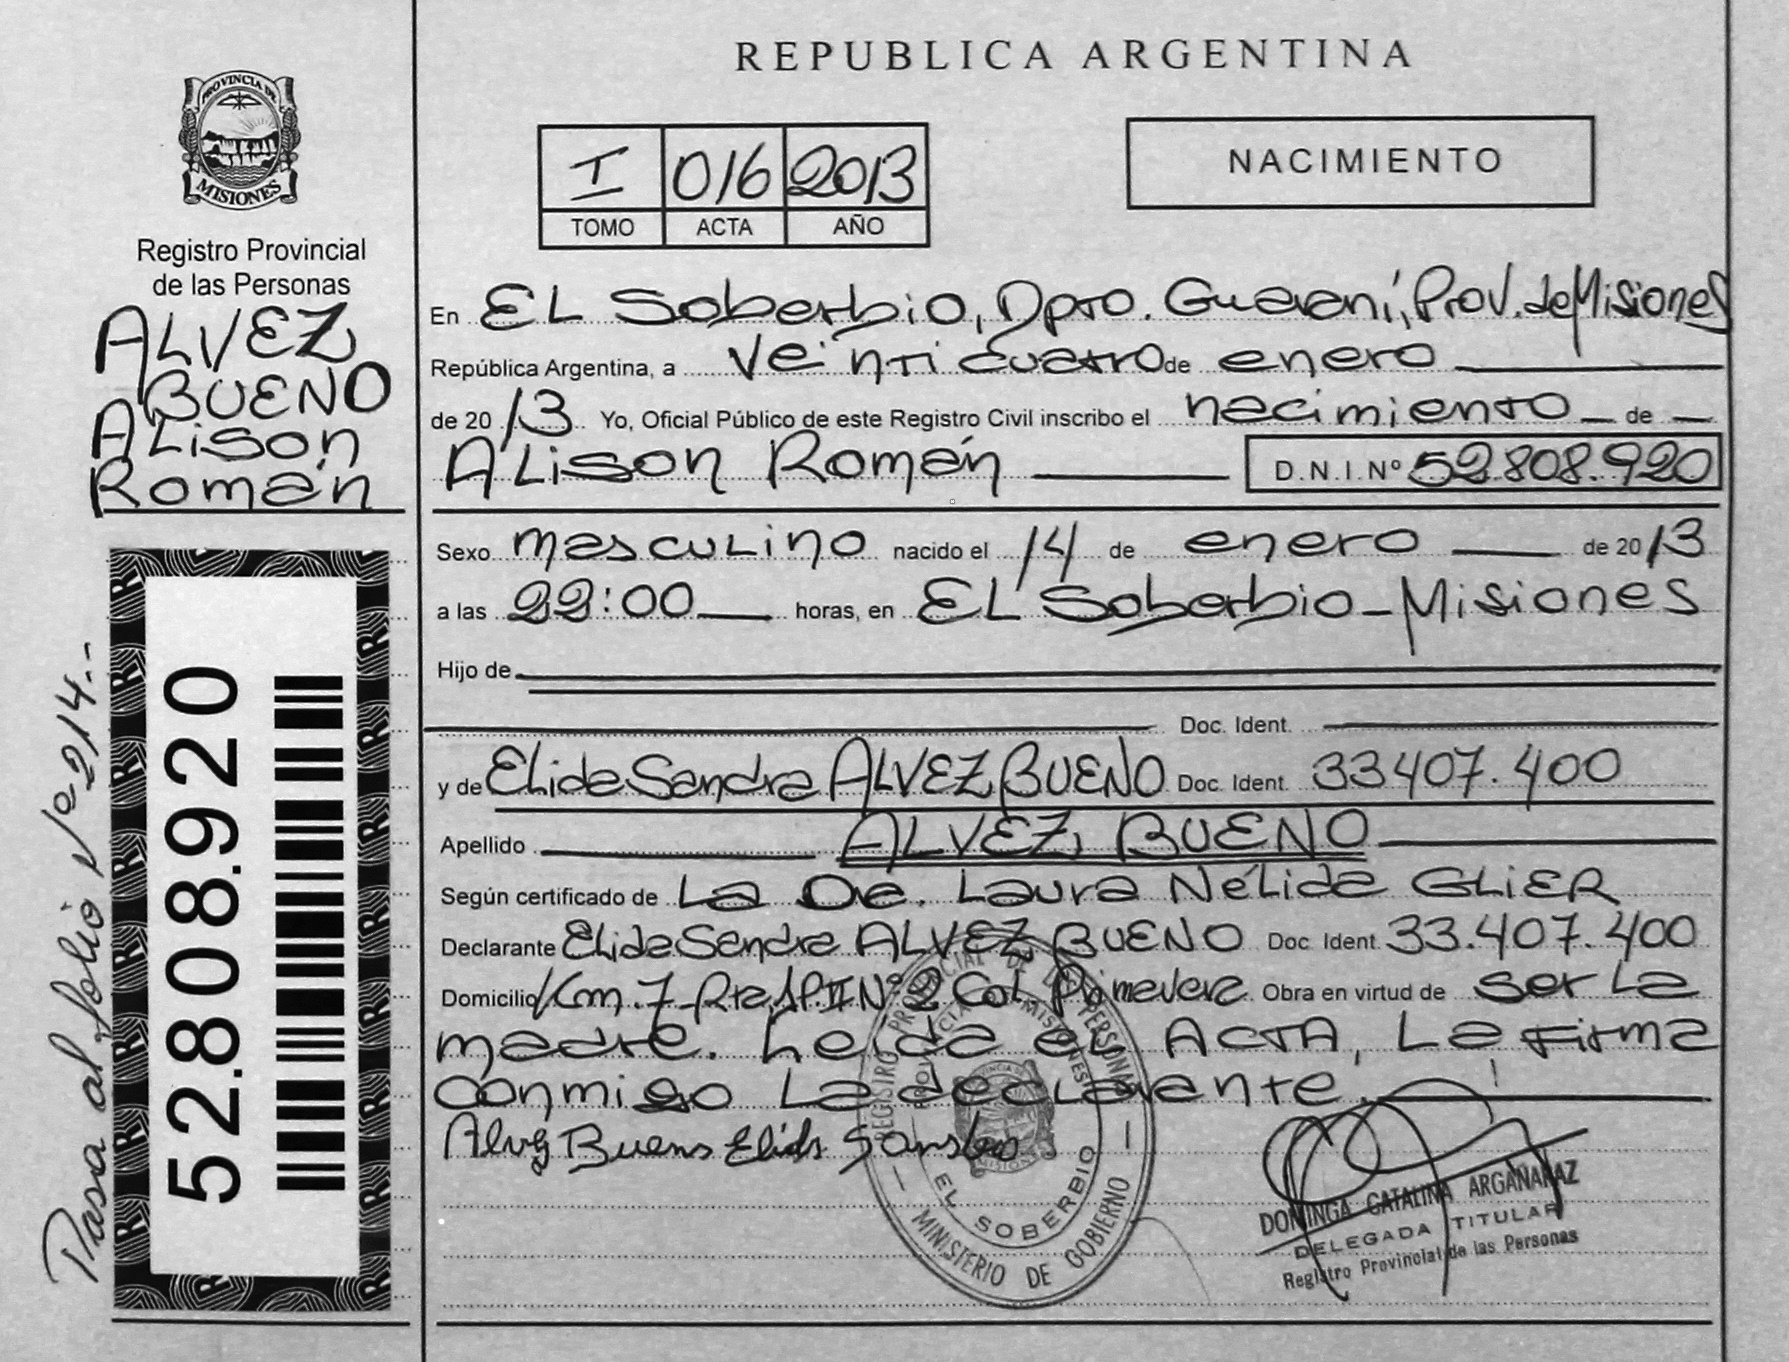 PROVINCIA DE
MISIONES
Registro Provincial
de las Personas
ALVEZ
BUENO
ALison
Román
52.808.920
Pasa al folio Nº 214.-
REPUBLICA ARGENTINA
I 016 2013
TOMO ACTA AÑO
NACIMIENTO
En EL Soberbio, Dpto. Guaraní, Prov. de Misiones
República Argentina, a veinticuatro de enero
de 2013 Yo, Oficial Público de este Registro Civil inscribo el nacimiento de
ALison Román D.N.I.Nº 52.808.920
Sexo masculino nacido el 14 de enero de 2013
a las 22:00 horas, en EL Soberbio - Misiones
Hijo de
Doc. Ident.
y de Elida Sandra ALVEZ BUENO Doc. Ident. 33407.400
Apellido ALVEZ, BUENO
Según certificado de La Dra. Laura Nélida GLIER
Declarante Elida Sandra ALVEZ BUENO Doc. Ident. 33.407.400
Domicilio Km. 7 Rta. Nº 2 Col. Primavera Obra en virtud de ser La
madre. Leída el ACTA, La Firma
conmigo La declarante.
Alvez Bueno Elida Sandra
REGISTRO PROVINCIAL DE LAS PERSONAS
PROVINCIA DE MISIONES
EL SOBERBIO
MINISTERIO DE GOBIERNO
DOMINGA CATALINA ARGAÑARAZ
DELEGADA TITULAR
Registro Provincial de las Personas